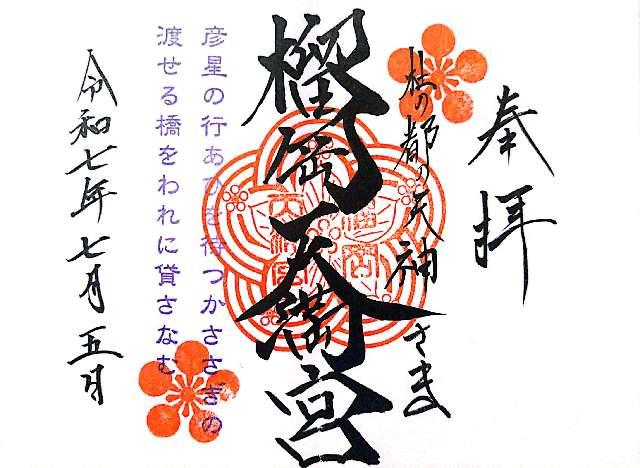 奉拝
杜の都の天神さま
榴岡天満宮
彦星の行あひを待つかささぎの
渡せる橋をわれに貸さなむ
令和七年七月五日